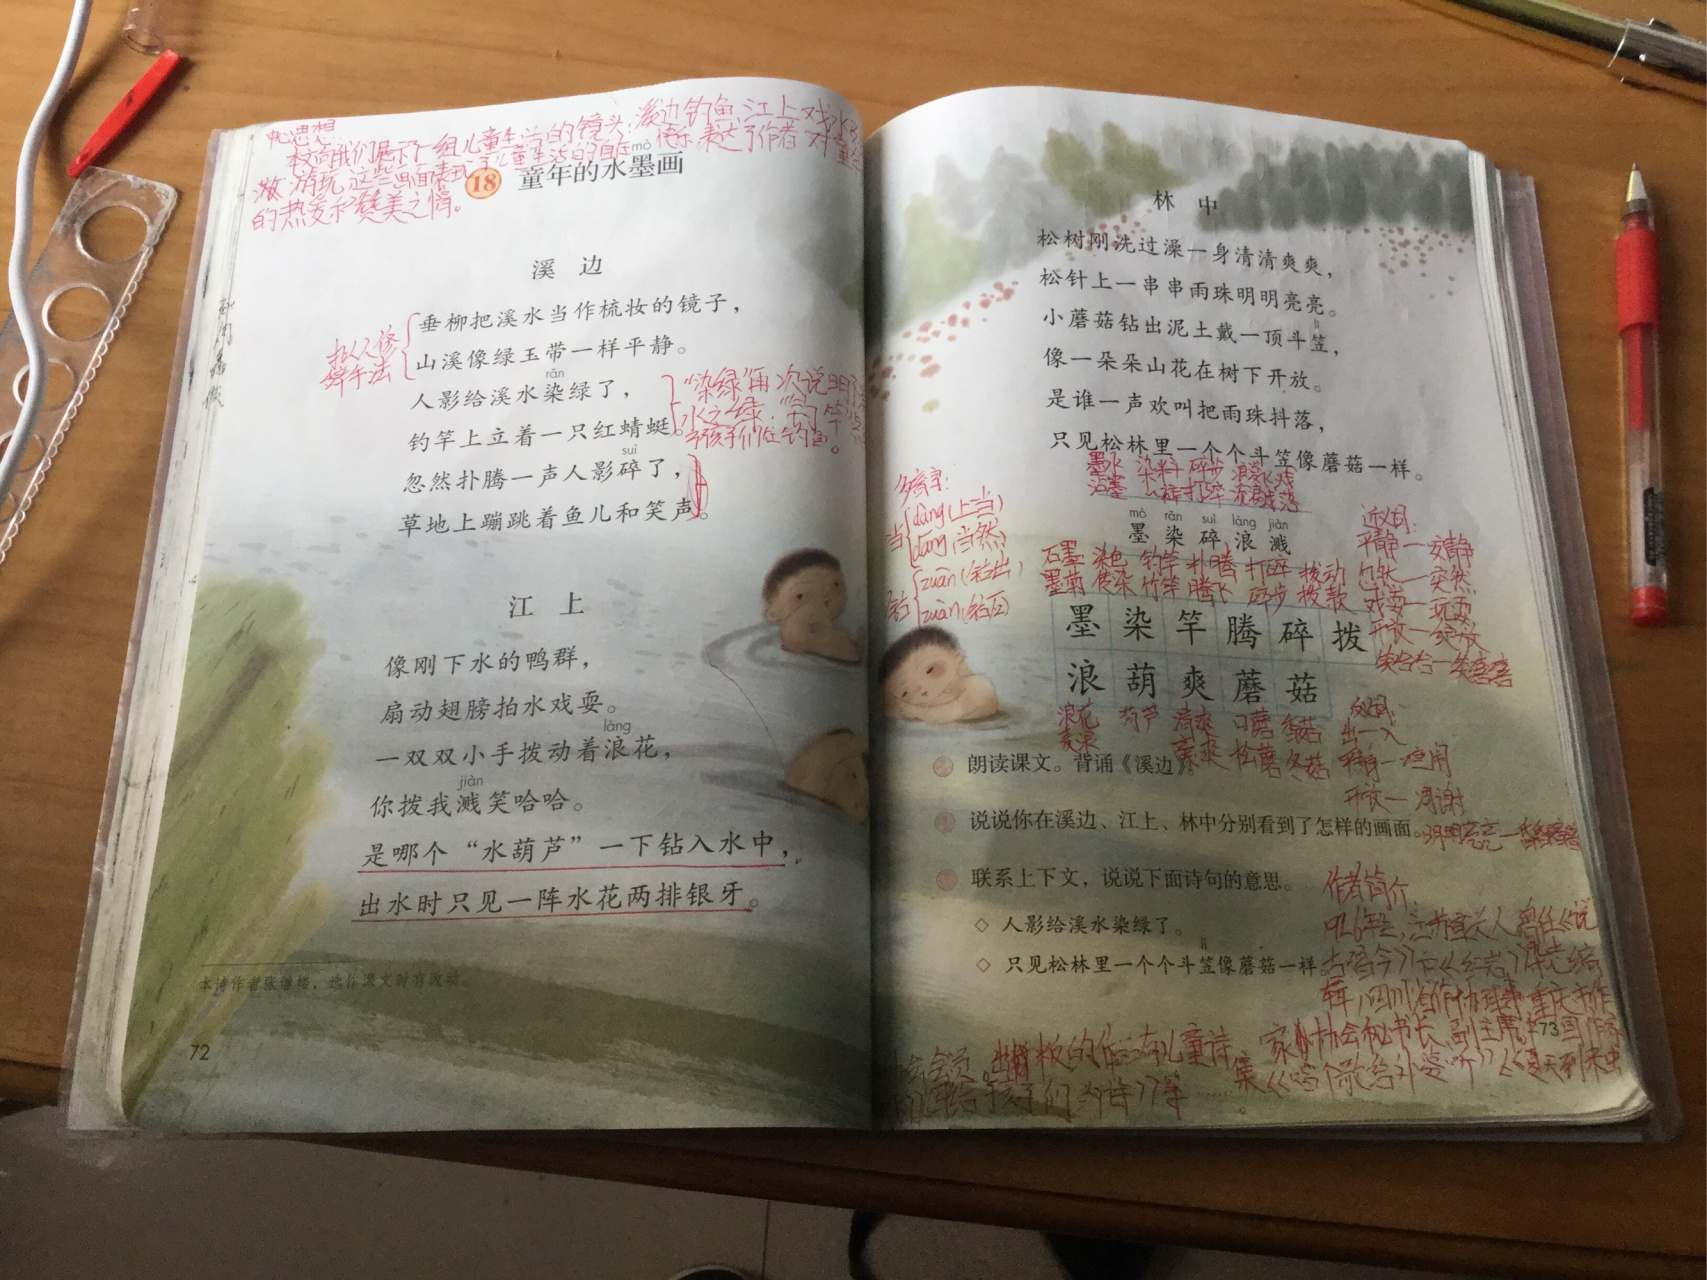 中心思想
本诗向我们展示了一组儿童生活的镜头:溪边钓鱼、江上戏水、
游玩,这些画面表现了儿童生活的自在快乐,表达了作者对童
的热爱和赞美之情。
18 童年的水墨画
mò
溪边
垂柳把溪水当作梳妆的镜子,
山溪像绿玉带一样平静。
拟人修
辞手法
rǎn
人影给溪水染绿了,
钓竿上立着一只红蜻蜓。
“染绿”再次说明
水之绿
孩子们在钓鱼。
suì
忽然扑腾一声人影碎了,
草地上蹦跳着鱼儿和笑声。
江上
像刚下水的鸭群,
扇动翅膀拍水戏耍。
làng
一双双小手拨动着浪花,
jiàn
你拨我溅笑哈哈。
是哪个“水葫芦”一下钻入水中,
出水时只见一阵水花两排银牙。
本诗作者张继楼,选作课文时有改动。
72
林中
松树刚洗过澡一身清清爽爽,
松针上一串串雨珠明明亮亮。
lì
小蘑菇钻出泥土戴一顶斗笠,
像一朵朵山花在树下开放。
是谁一声欢叫把雨珠抖落,
只见松林里一个个斗笠像蘑菇一样。
墨水 染料 碎步 浪花
mò rǎn suì làng jiàn
墨 染 碎 浪 溅
多音字:
当 dàng(上当)
dāng(当然)
钻 zuān(钻出)
zuàn(钻石)
石墨 染色 钓竿 扑腾 打碎 拨动
墨菊 传染 竹竿 腾飞 碎步 拨款
墨 染 竿 腾 碎 拨
浪 葫 爽 蘑 菇
浪花 葫芦 清爽 口蘑 香菇
豪爽 松蘑 冬菇
近义词:
平静—安静
忽然—突然
戏耍—玩耍
开放—绽放
笑哈哈—笑嘻嘻
反义词:
出—入
开放—凋谢
朗读课文。背诵《溪边》
说说你在溪边、江上、林中分别看到了怎样的画面。
联系上下文,说说下面诗句的意思。
◇ 人影给溪水染绿了。
lì
◇ 只见松林里一个个斗笠像蘑菇一样
作者简介
1926年生,江苏宜兴人,曾任《说
古唱今》和《红岩》杂志编
辑,四川省作协理事,重庆市作
家协会秘书长、副主席,中国作家
协会会员。出版的作品有儿童诗
集《唱个歌给外婆听》《夏天到来虫
儿》《给孩子们的诗》等
73